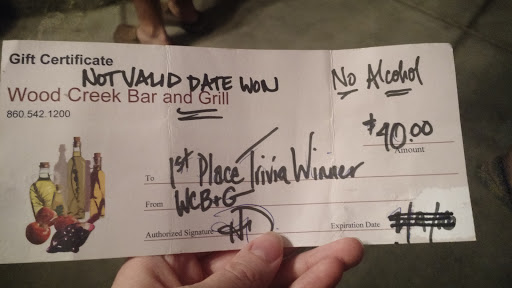 Gift Certificate
NOT VALID DATE WON
No Alcohol
Wood Creek Bar and Grill
860.542.1200
$40.00
Amount
To 1st Place Trivia Winner
From WCB+G
Authorized Signature
Expiration Date